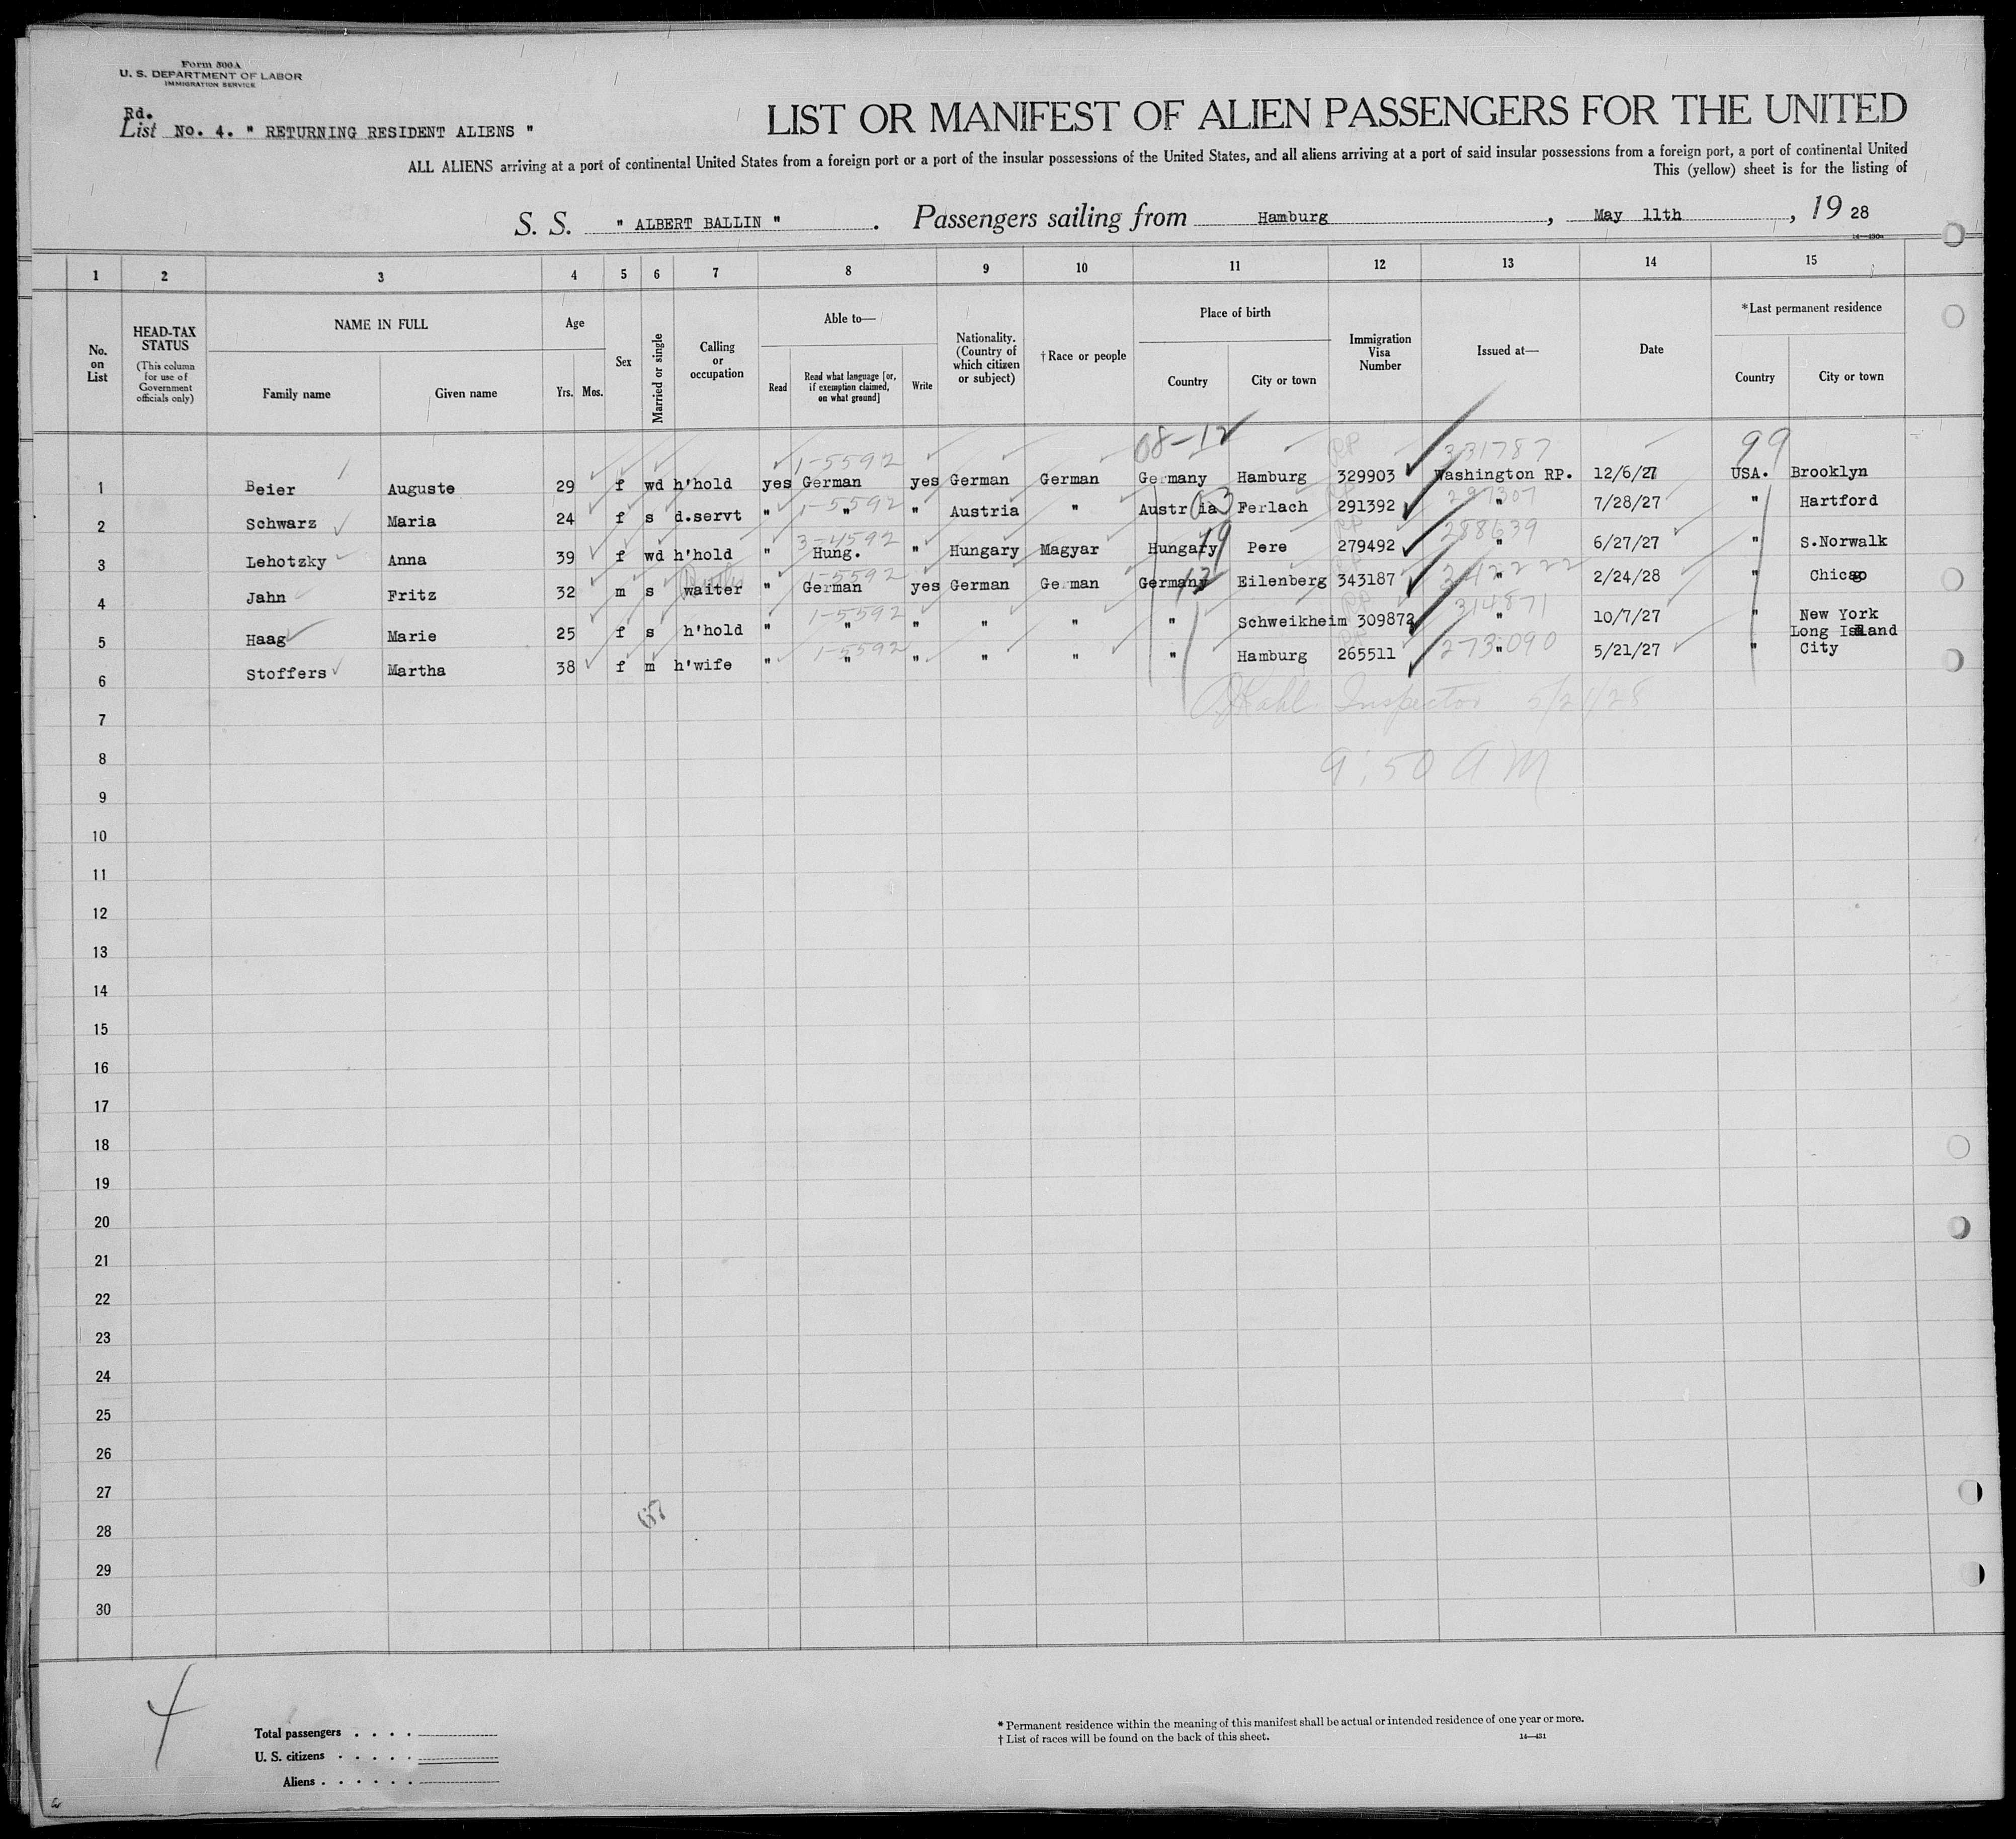 Form 500A
U. S. DEPARTMENT OF LABOR
IMMIGRATION SERVICE
Rd.
List No. 4. " RETURNING RESIDENT ALIENS "
LIST OR MANIFEST OF ALIEN PASSENGERS FOR THE UNITED
ALL ALIENS arriving at a port of continental United States from a foreign port or a port of the insular possessions of the United States, and all aliens arriving at a port of said insular possessions from a foreign port, a port of continental United
This (yellow) sheet is for the listing of
S. S. " ALBERT BALLIN ". Passengers sailing from Hamburg, May 11th, 19 28
14—430a
1 2 3 4 5 6 7 8 9 10 11 12 13 14 15
No. on List
HEAD-TAX STATUS
(This column for use of Government officials only)
NAME IN FULL
Family name Given name
Age
Yrs. Mos.
Sex
Married or single
Calling or occupation
Able to—
Read Read what language [or, if exemption claimed, on what ground] Write
Nationality. (Country of which citizen or subject)
†Race or people
Place of birth
Country City or town
Immigration Visa Number
Issued at—
Date
*Last permanent residence
Country City or town
08-12 99
1-5592 RP 331787
1 Beier Auguste 29 f wd h'hold yes German yes German German Germany Hamburg 329903 Washington RP. 12/6/27 USA. Brooklyn
1-5592 03 RP 297307
2 Schwarz Maria 24 f s d.servt " " " Austria " Austria Ferlach 291392 " 7/28/27 " Hartford
3-4592 19 RP 288639
3 Lehotzky Anna 39 f wd h'hold " Hung. " Hungary Magyar Hungary Pere 279492 " 6/27/27 " S.Norwalk
1-5592 12 RP 342222
4 Jahn Fritz 32 m s waiter " German yes German German Germany Eilenberg 343187 " 2/24/28 " Chicago
1-5592 RP 314871
5 Haag Marie 25 f s h'hold " " " " " " Schweikheim 309872 " 10/7/27 " New York
Long Island
1-5592 RP 273090
6 Stoffers Martha 38 f m h'wife " " " " " " Hamburg 265511 " 5/21/27 " City
Kahl Inspector 5/21/28
7
9:50 AM
8
9
10
11
12
13
14
15
16
17
18
19
20
21
22
23
24
25
26
27
28
29
30
4
Total passengers . . . .
U. S. citizens . . . . .
Aliens . . . . . .
* Permanent residence within the meaning of this manifest shall be actual or intended residence of one year or more.
† List of races will be found on the back of this sheet.
14—431